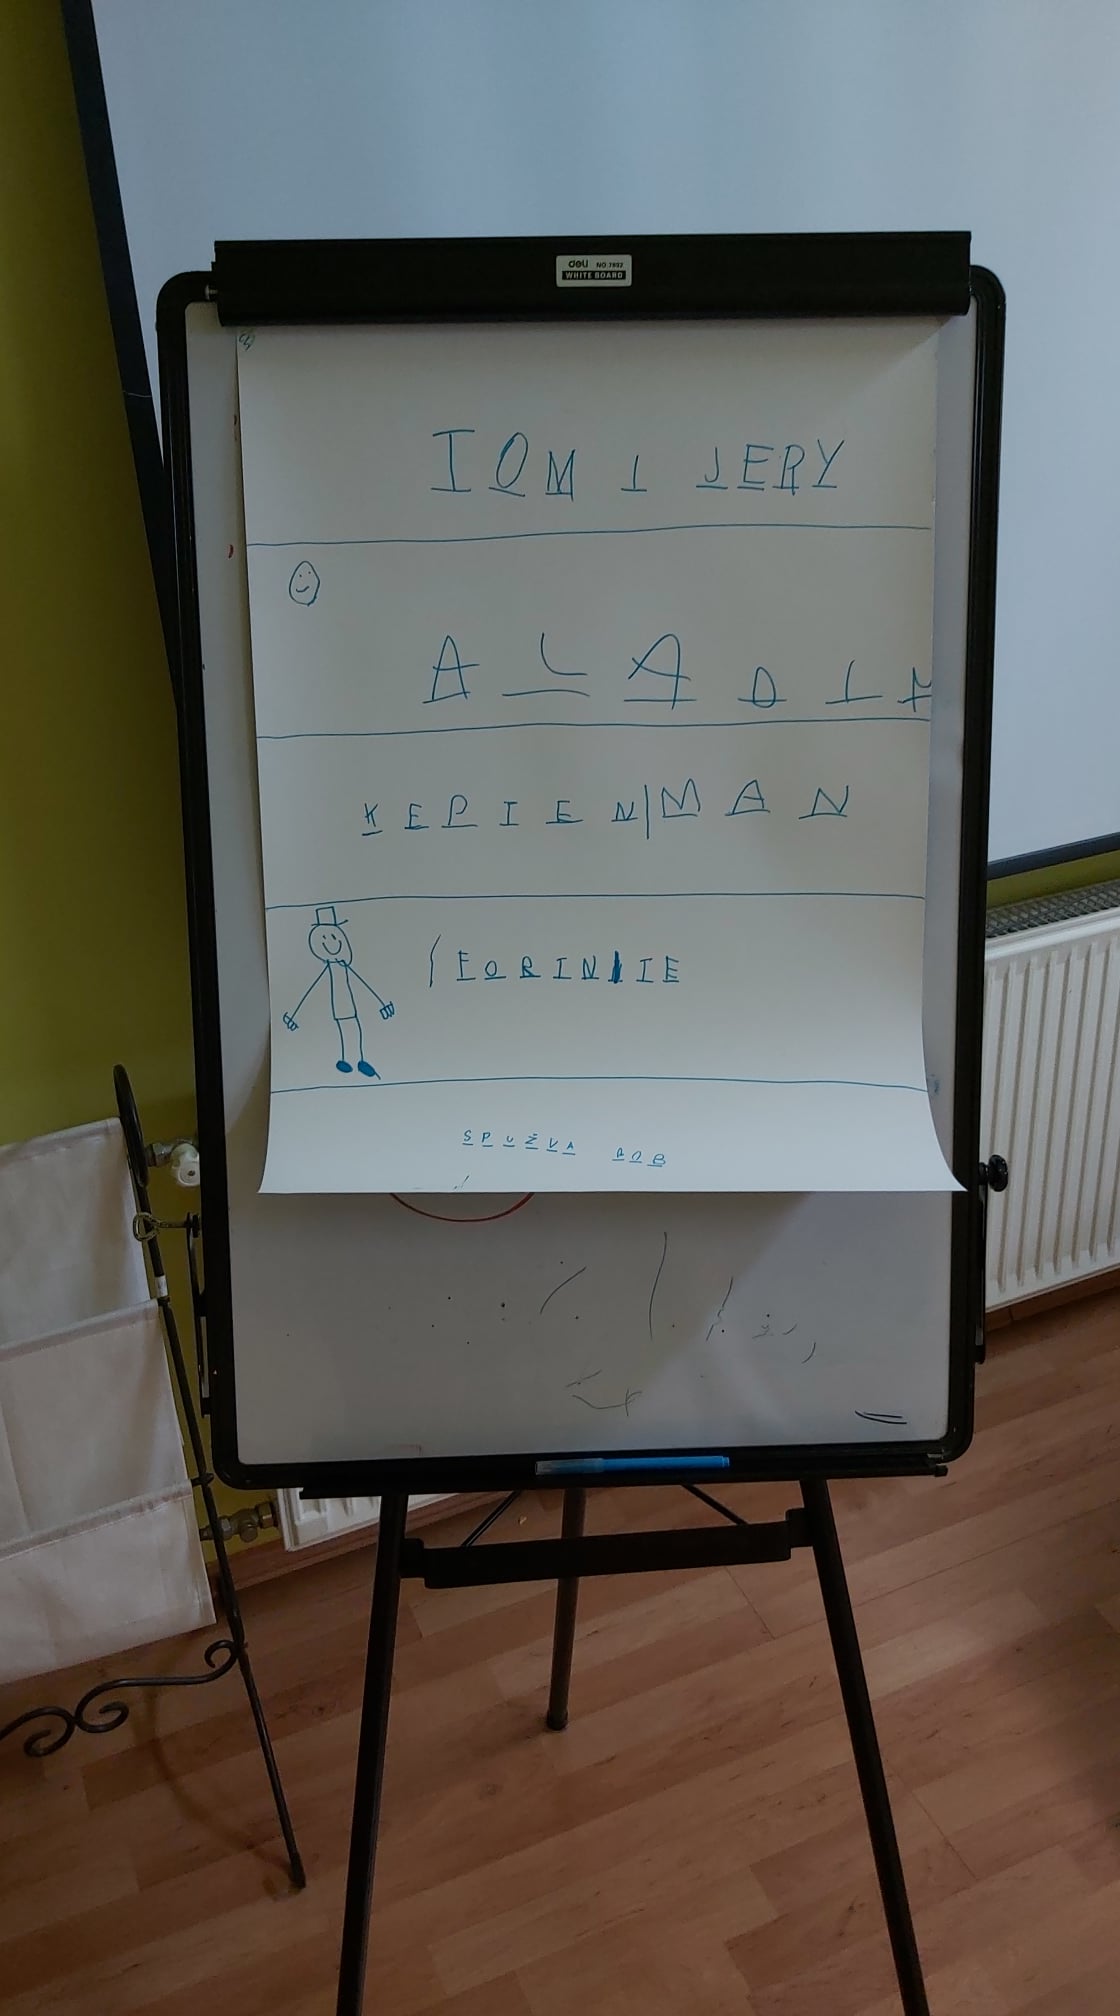 deli NO.7892
WHITE BOARD
TOM I JERY
ALADIN
KEPIEN|MAN
FORINIIE
SPUŽVA BOB